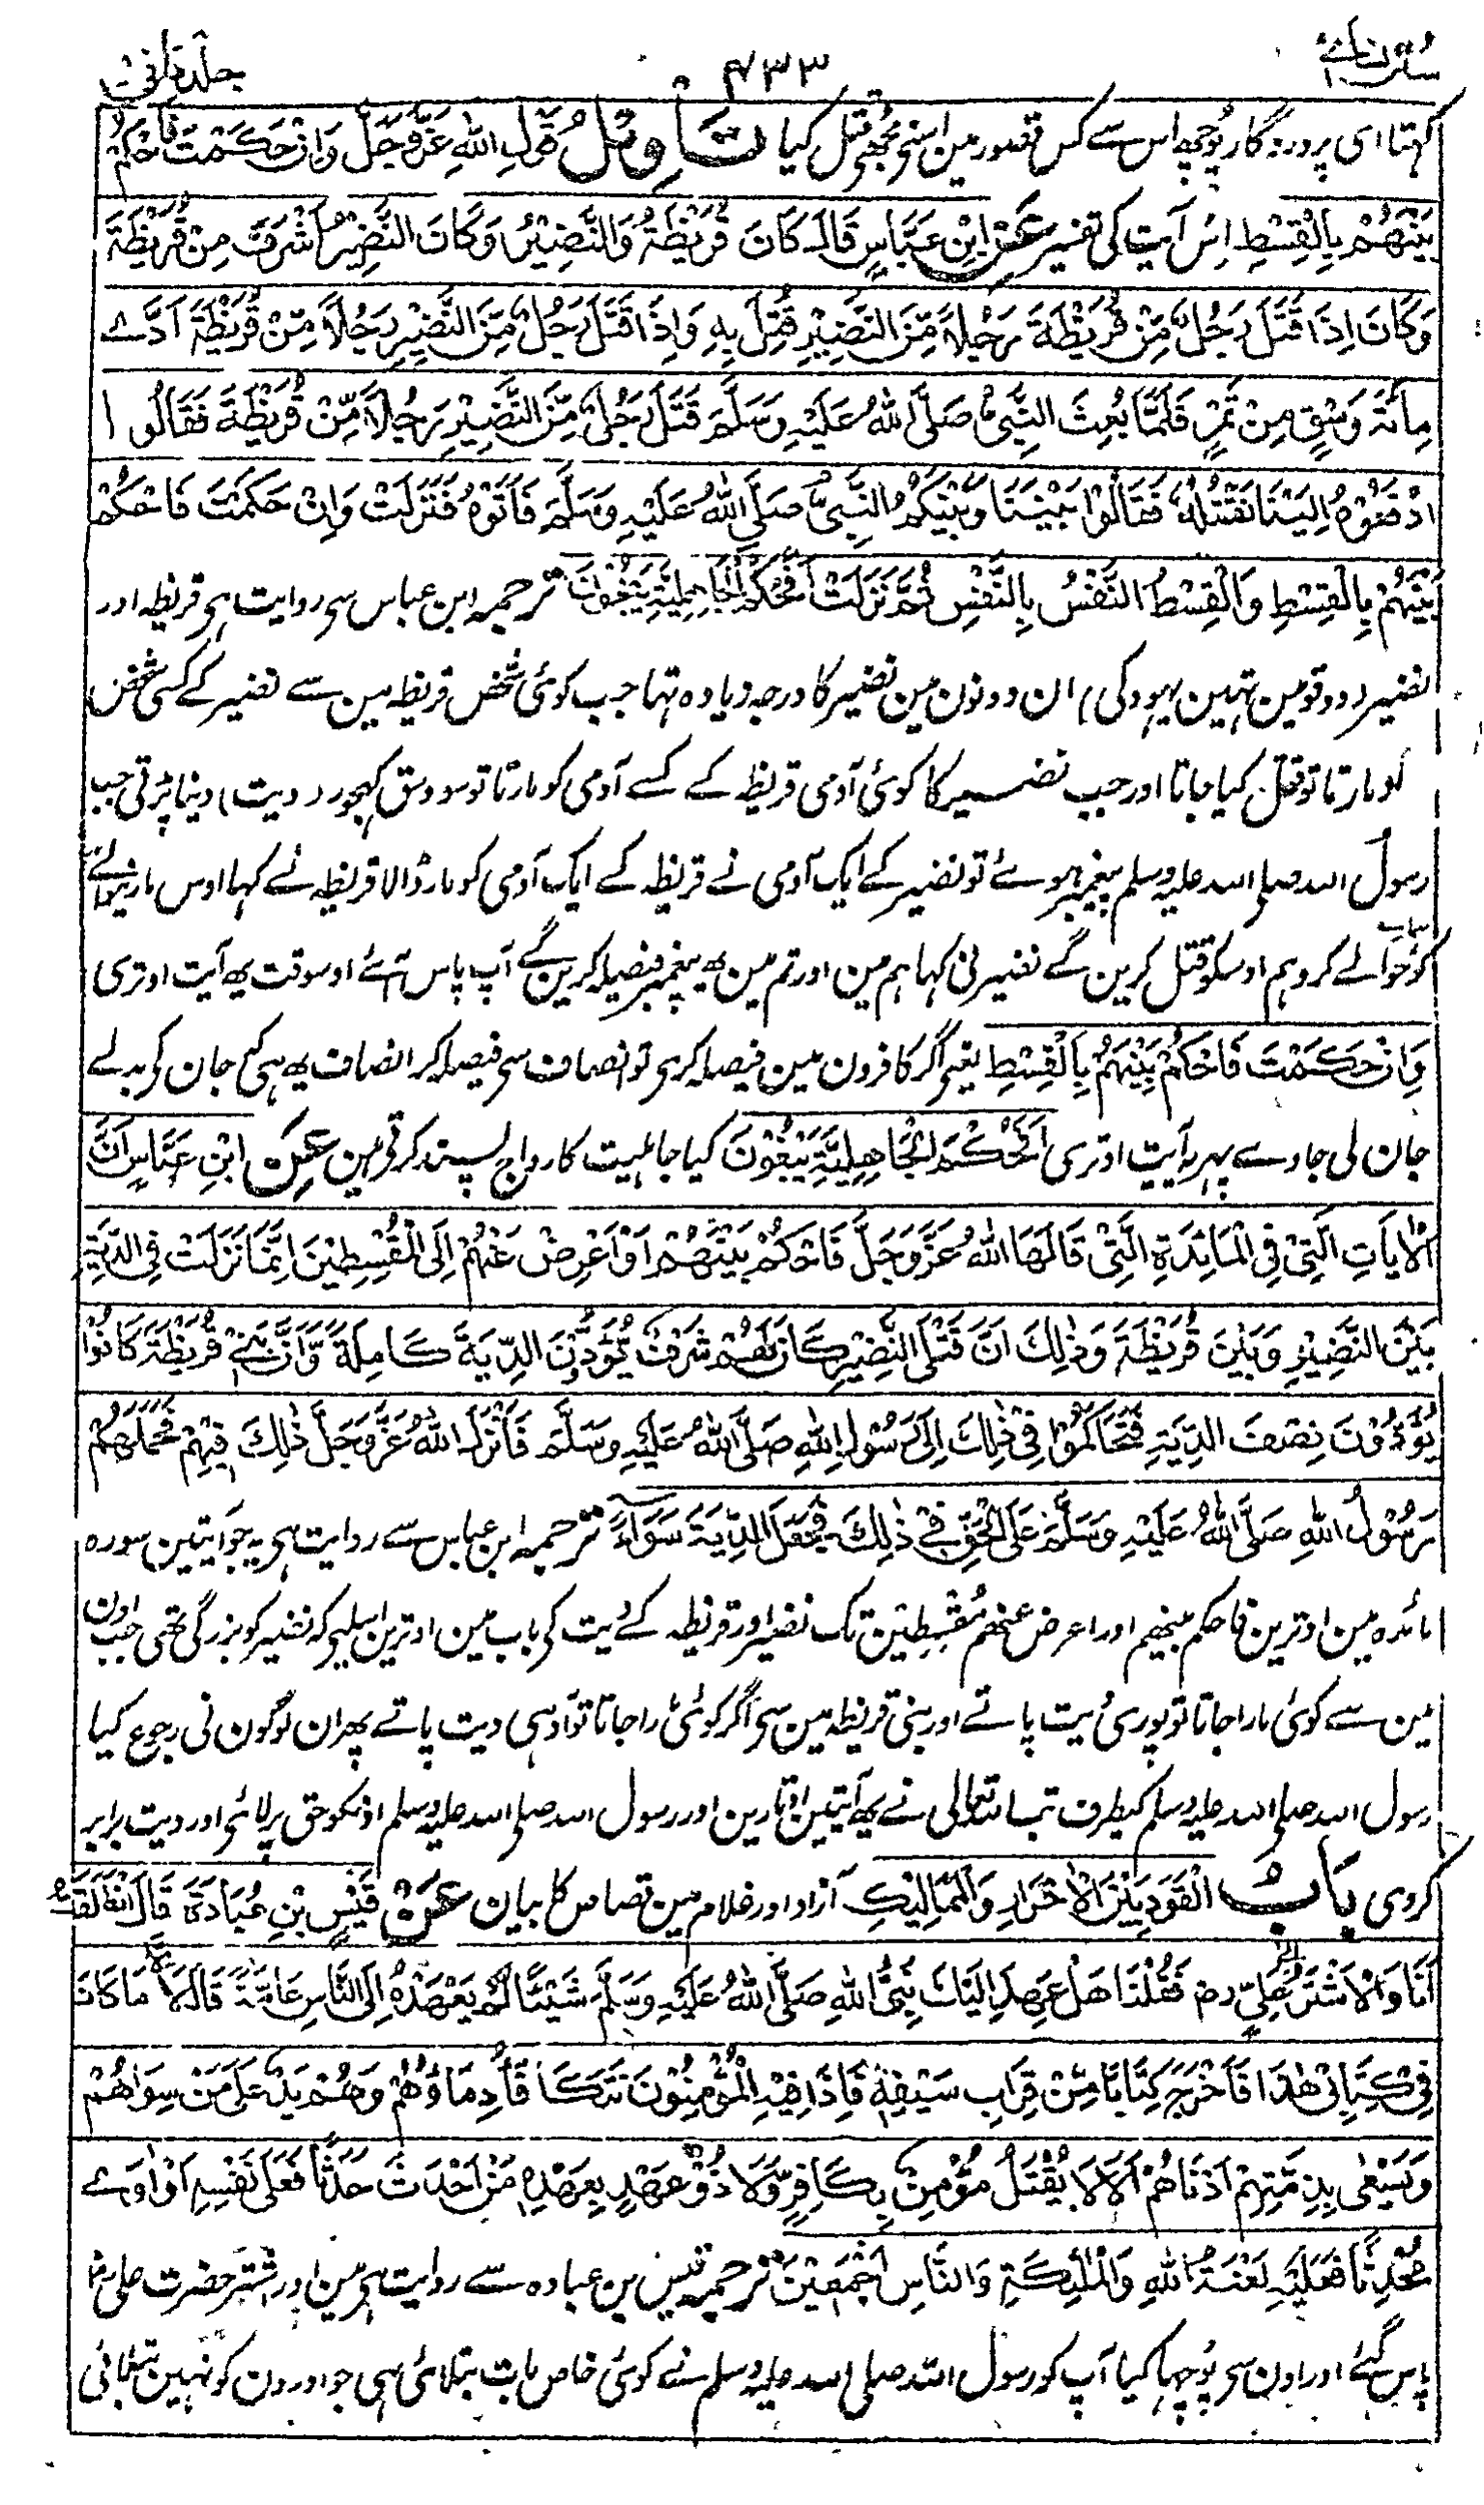 سنن نسائی ۴۳۳ جلد ثانی
کہتا ای پروردگار پُوچھ اس سے کس قصور مین اسنی مجھی قتل کیا تَاْوِیْلُ قَوْلِ اللّٰہِ عَزَّوَجَلَّ وَاِنْ حَکَمْتَ فَاحْکُمْ
بَیْنَھُمْ بِالْقِسْطِ اِس آیت کی تفسیر عَنِ ابْنِ عَبَّاسٍ قَالَ کَانَ قُرَیْظَۃُ وَالنَّضِیْرُ وَکَانَ النَّضِیْرُ اَشْرَفَ مِنْ قُرَیْظَۃَ
وَکَانَ اِذَا قَتَلَ رَجُلٌ مِّنْ قُرَیْظَۃَ رَجُلاً مِّنَ النَّضِیْرِ قُتِلَ بِہٖ وَاِذَا قَتَلَ رَجُلٌ مِّنَ النَّضِیْرِ رَجُلاً مِّنْ قُرَیْظَۃَ اَدّٰے
مِائَۃَ وَسْقٍ مِنْ تَمْرٍ فَلَمَّا بُعِثَ النَّبِیُّ صَلَّی اللّٰہُ عَلَیْہِ وَسَلَّمَ قَتَلَ رَجُلٌ مِّنَ النَّضِیْرِ رَجُلاً مِّنْ قُرَیْظَۃَ فَقَالُوا
ادْفَعُوْہُ اِلَیْنَا نَقْتُلْہُ فَقَالُوْا بَیْنَنَا وَبَیْنَکُمُ النَّبِیُّ صَلَّی اللّٰہُ عَلَیْہِ وَسَلَّمَ فَاَتَوْہُ فَنَزَلَتْ وَاِنْ حَکَمْتَ فَاحْکُمْ
بَیْنَھُمْ بِالْقِسْطِ وَالْقِسْطُ النَّفْسُ بِالنَّفْسِ ثُمَّ نَزَلَتْ اَفَحُکْمَ الْجَاہِلِیَّۃِ یَبْغُوْنَ ترجمہ ابن عباس سی روایت ہی قریظہ اور
نضیر دو قومین تہین یہود کی، ان دونون مین نضیر کا درجہ زیادہ تہا جب کوئی شخص قریظہ مین سے نضیر کے کسی شخص
کو مارتا تو قتل کیا جاتا اور جب نضیر کا کوئی آدمی قریظہ کے کسے آدمی کو مارتا تو سو وسق کہجور (دیت) دینا پڑتی جب
رسول اللہ صلی اللہ علیہ وسلم پیغمبر ہوئے تو نضیر کے ایک آدمی نے قریظہ کے ایک آدمی کو مار ڈالا قریظہ نے کہا اوس مارنیوالے
کو حوالے کرو ہم اوسکو قتل کرین گے نضیر نی کہا ہم مین اور تم مین یہ پیغمبر فیصلہ کرین گے آپ پاس آئے اوسوقت یہ آیت اوتری
وَاِنْ حَکَمْتَ فَاحْکُمْ بَیْنَھُمْ بِالْقِسْطِ یعنی اگر کافرون مین فیصلہ کری تو انصاف سی فیصلہ کر انصاف یہ ہی کہ جان کی بدلے
جان لی جاوے پہر یہ آیت اوتری اَفَحُکْمَ الْجَاھِلِیَّۃِ یَبْغُوْنَ کیا جاہلیت کا رواج پسند کرتی ہین عَنِ ابْنِ عَبَّاسٍ اَنَّ
الْاٰیَاتِ الَّتِیْ فِی الْمَائِدَۃِ الَّتِیْ قَالَھَا اللّٰہُ عَزَّوَجَلَّ فَاحْکُمْ بَیْنَھُمْ اَوْ اَعْرِضْ عَنْھُمْ اِلَی الْمُقْسِطِیْنَ اِنَّمَا نَزَلَتْ فِی الدِّیَۃِ
بَیْنَ النَّضِیْرِ وَبَیْنَ قُرَیْظَۃَ وَذٰلِکَ اَنَّ قَتْلَی النَّضِیْرِ کَانَ لَھُمْ شَرَفٌ یُّؤَدُّوْنَ الدِّیَۃَ کَامِلَۃً وَّاَنَّ بَنِیْ قُرَیْظَۃَ کَانُوْا
یُؤَدُّوْنَ نِصْفَ الدِّیَۃِ فَتَحَاکَمُوْا فِیْ ذٰلِکَ اِلٰی رَسُوْلِ اللّٰہِ صَلَّی اللّٰہُ عَلَیْہِ وَسَلَّمَ فَاَنْزَلَ اللّٰہُ عَزَّوَجَلَّ ذٰلِکَ فِیْھِمْ فَحَمَلَھُمْ
رَسُوْلُ اللّٰہِ صَلَّی اللّٰہُ عَلَیْہِ وَسَلَّمَ عَلَی الْحَقِّ فِیْ ذٰلِکَ فَجَعَلَ الدِّیَۃَ سَوَاءً ترجمہ ابن عباس سے روایت ہی یہ جو آیتین سورہ
مائدہ مین اوترین فاحکم بینھم اور اعرض عنھم مُقْسِطِیْن تک نضیر اور قریظہ کے دیت کی باب مین اوترین اسلیے کہ نضیر کو بزرگی تھی جب اون
مین سے کوئی مارا جاتا تو پوری دیت پاتے اور بنی قریظہ مین سی اگر کوئی مارا جاتا تو آدہی دیت پاتے پھر ان لوگون نی رجوع کیا
رسول اللہ صلی اللہ علیہ وسلم کیطرف تب اللہ تعالی نے یہ آیتین اوتارین اور رسول اللہ صلی اللہ علیہ وسلم اونکو حق پر لائی اور دیت برابر
کردی بَابُ الْقَوَدِ بَیْنَ الْاَحْرَارِ وَالْمَمَالِیْکِ آزاد اور غلام مین قصاص کا بیان عَنْ قَیْسِ بْنِ عُبَادَۃَ قَالَ انْطَلَقْتُ
اَنَا وَالْاَشْتَرُ اِلٰی عَلِیٍّ رض فَقُلْنَا ھَلْ عَھِدَ اِلَیْکَ نَبِیُّ اللّٰہِ صَلَّی اللّٰہُ عَلَیْہِ وَسَلَّمَ شَیْئًا لَمْ یَعْھَدْہُ اِلَی النَّاسِ عَامَّۃً قَالَ لَا اِلَّا مَا کَانَ
فِیْ کِتَابِیْ ھٰذَا فَاَخْرَجَ کِتَابًا مِّنْ قِرَابِ سَیْفِہٖ فَاِذَا فِیْہِ الْمُؤْمِنُوْنَ تَتَکَافَأُ دِمَاؤُھُمْ وَھُمْ یَدٌ عَلٰی مَنْ سِوَاھُمْ
وَیَسْعٰی بِذِمَّتِھِمْ اَدْنَاھُمْ اَلَا لَا یُقْتَلُ مُؤْمِنٌ بِکَافِرٍ وَّلَا ذُوْ عَھْدٍ بِعَھْدِہٖ مَنْ اَحْدَثَ حَدَثًا فَعَلٰی نَفْسِہٖ اَوْ اٰوٰے
مُحْدِثًا فَعَلَیْہِ لَعْنَۃُ اللّٰہِ وَالْمَلٰئِکَۃِ وَالنَّاسِ اَجْمَعِیْنَ ترجمہ قیس بن عبادہ سے روایت ہی مین اور اشتر حضرت علی رض
پاس گئے اور اون سی پُوچہا کیا آپ کو رسول اللہ صلی اللہ علیہ وسلم نے کوئی خاص بات بتلائی ہی جو اورون کو نہین بتلائی